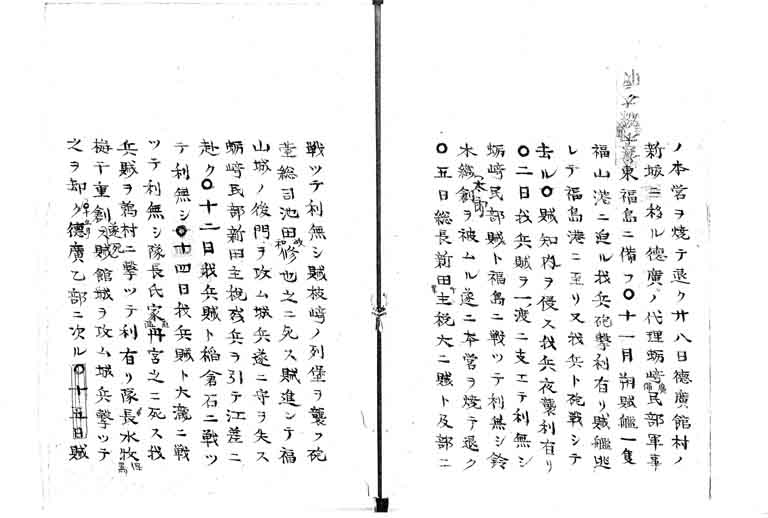 ノ本営ヲ焼テ退ク廿八日徳廣館村ノ
新城ニ移ル徳廣ノ代理蛎崎民部軍事
東福島ニ備フ〇十一月朔賊艦一隻
福山港ニ迫ル我兵砲撃利有リ賊艦逃
レテ福島港ニ至リ又我兵ト砲戦シテ
去ル〇賊知内ヲ侵ス我兵夜襲利有リ
〇二日我兵賊ヲ一渡ニ支エテ利無シ
蛎崎民部賊ト福島ニ戦ツテ利無シ鈴
木織太郎創ヲ被ムル遂ニ本営ヲ焼テ退ク
〇五日総長新田主税大ニ賊ト及部ニ
戦ツテ利無シ賊枝崎ノ列堡ヲ襲フ砲
台総司池田修也之ニ死ス賊進ンテ福
山城ノ後門ヲ攻ム城兵遂ニ守ヲ失ス
蛎崎民部新田主税残兵ヲ引テ江差ニ
赴ク〇十二日我兵賊ト稲倉石ニ戦ツ
テ利無シ〇十四日我兵賊ト大瀧ニ戦
ツテ利無シ隊長氏家丹宮之ニ死ス我
兵賊ヲ鶉村ニ撃ツテ利有リ隊長水牧
梅干重創ヲ賊館城ヲ攻ム城兵撃ツテ
之ヲ却ク徳廣乙部ニ次ル〇十五日賊